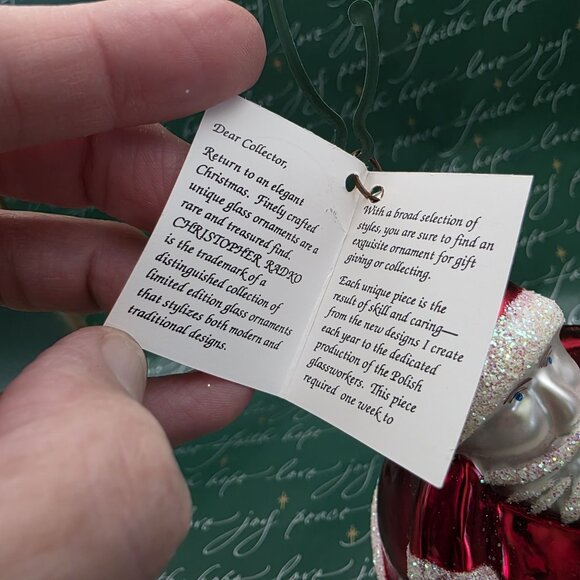 Dear Collector,
Return to an elegant
Christmas. Finely crafted
unique glass ornaments are a
rare and treasured find.
CHRISTOPHER RADKO
is the trademark of a
distinguished collection of
limited edition glass ornaments
that stylizes both modern and
traditional designs.
With a broad selection of
styles, you are sure to find an
exquisite ornament for gift
giving or collecting.
Each unique piece is the
result of skill and caring—
from the new designs I create
each year to the dedicated
production of the Polish
glassworkers. This piece
required one week to
faith hope
love joy
peace